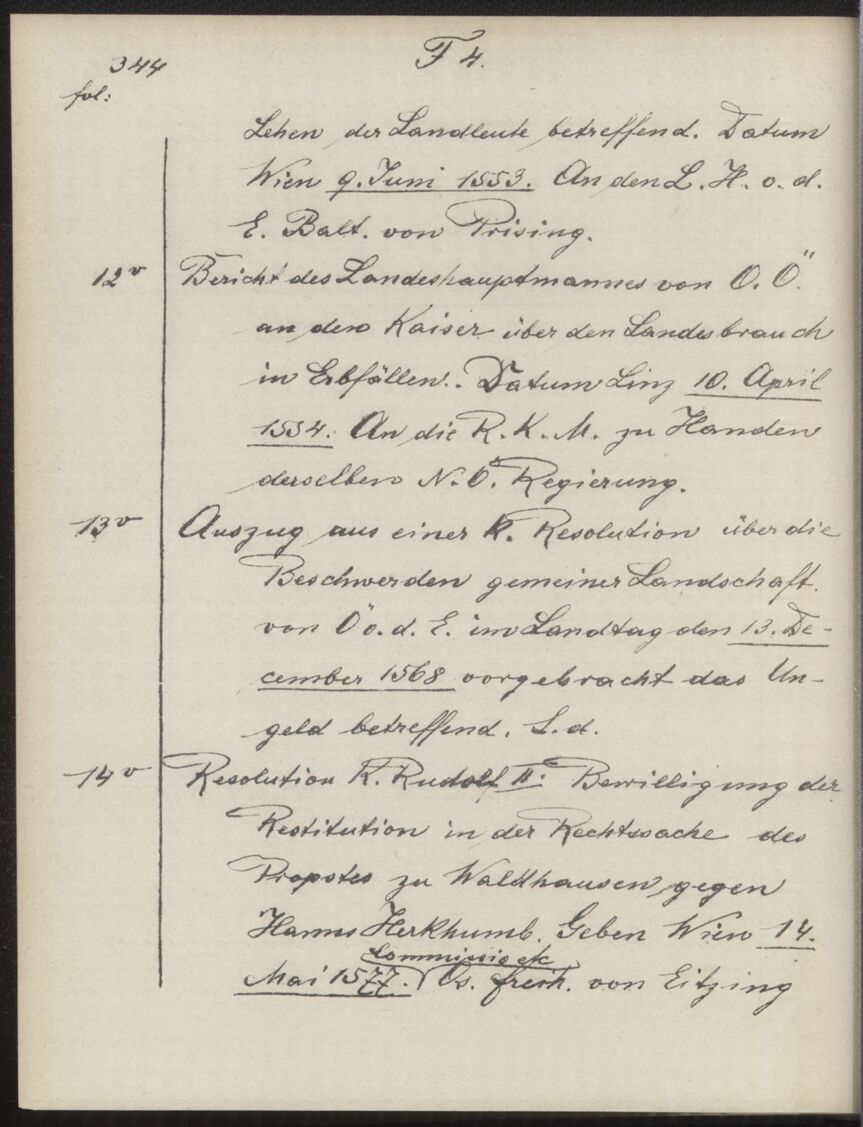 344
F 4.
fol:
Lehen der Landleute betreffend. Datum
Wien 9. Juni 1553. An den L. H. o. d.
E. Balt. von Prising.
12v Bericht des Landeshauptmannes von O. Ö.
an den Kaiser über den Landesbrauch
in Erbfällen. Datum Linz 10. April
1554. An die R. K. M. zu Handen
derselben N. Ö. Regierung.
13v Auszug aus einer k. Resolution über die
Beschwerden gemeiner Landschaft
von Ö o. d. E. im Landtag den 13. De-
cember 1568 vorgebracht das Un-
geld betreffend. S. d.
14v Resolution K. Rudolf II. Bewilligung der
Restitution in der Rechtssache des
Propstes zu Waldhausen gegen
Hanns Herkhumb. Geben Wien 14.
Commissio etc
Mai 1577. Os. freih. von Eitzing